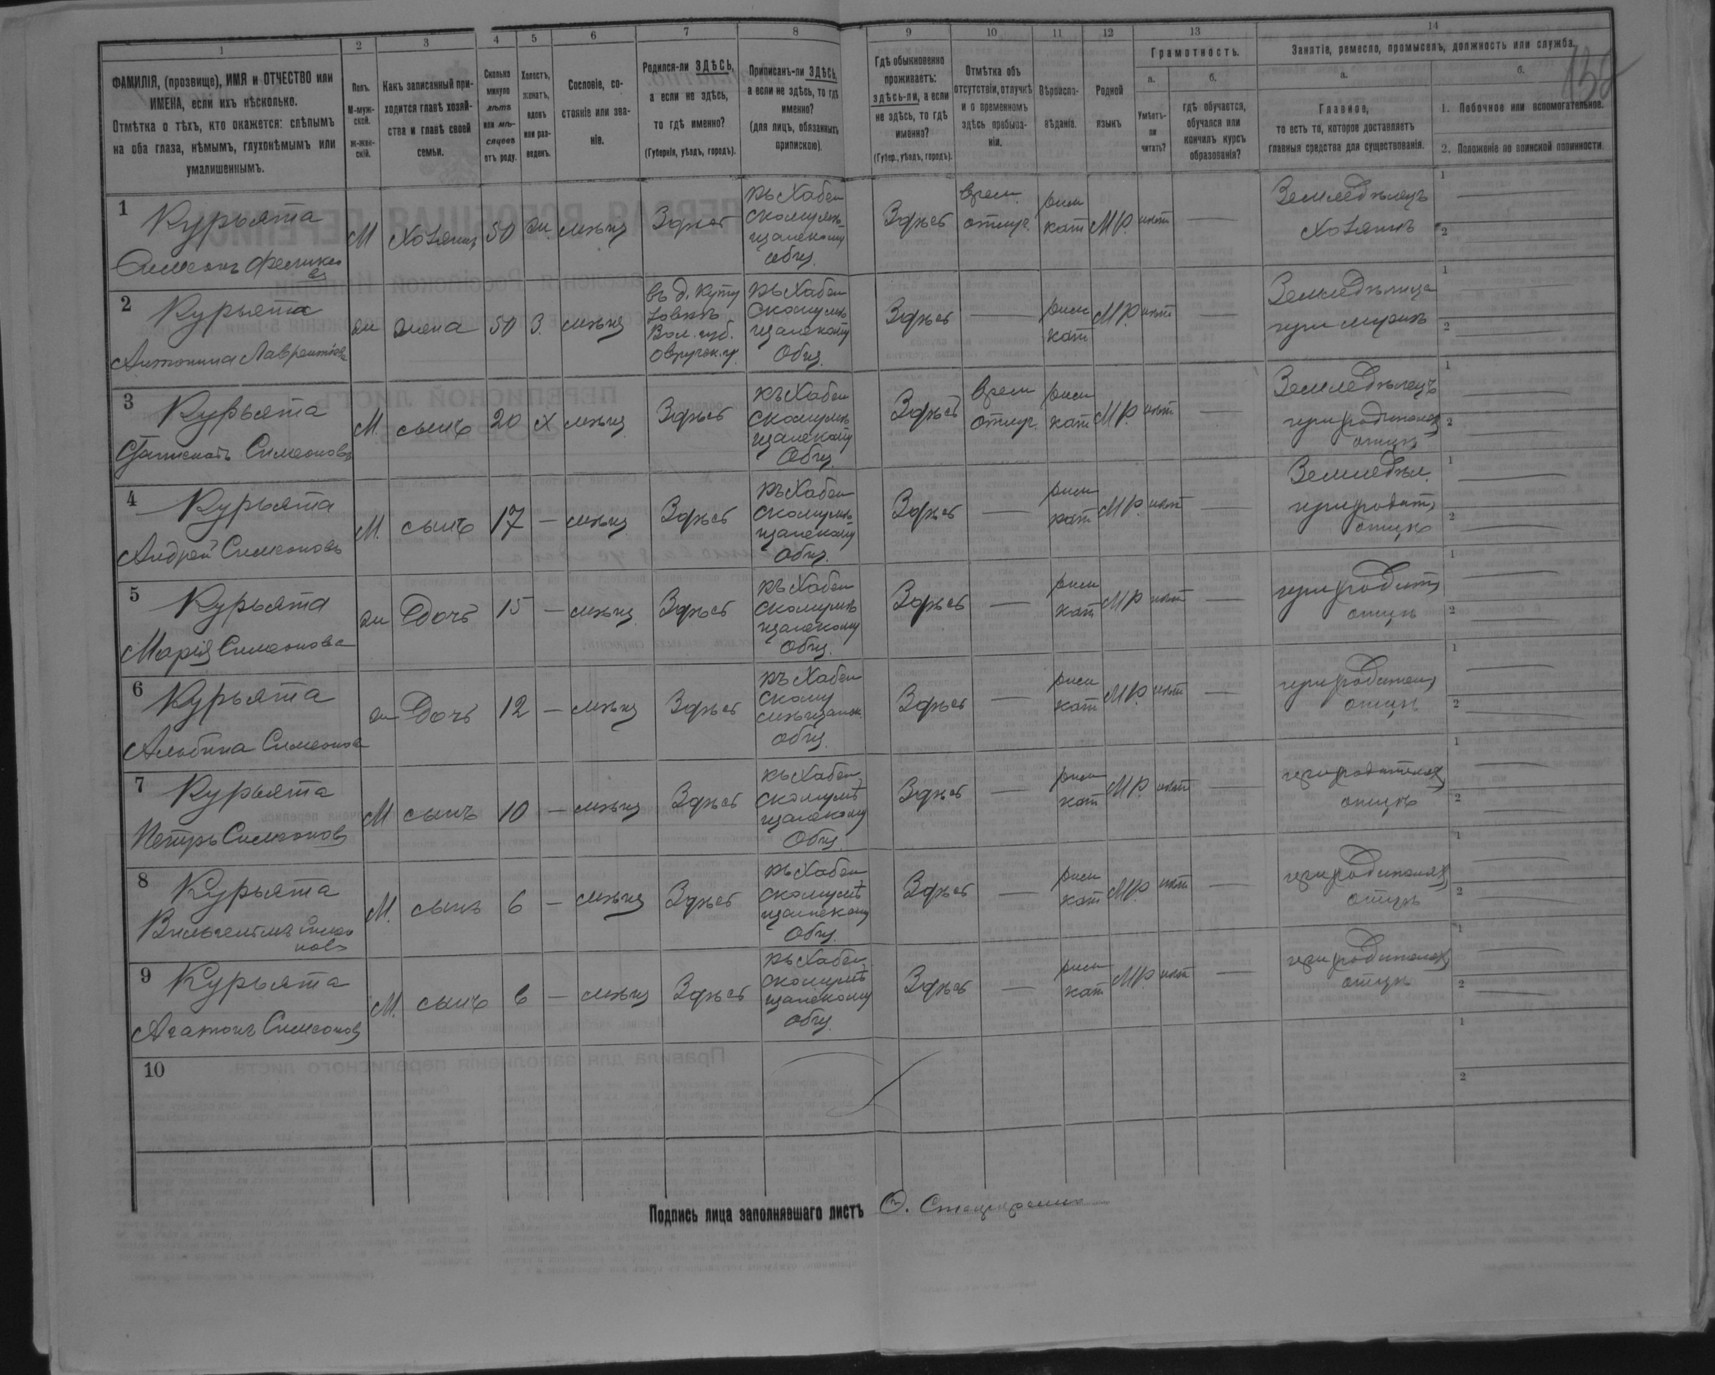 1 2 3 4 5 6 7 8 9 10 11 12 13 14
ФАМИЛІЯ, (прозвище), ИМЯ и ОТЧЕСТВО или
ИМЕНА, если ихъ нѣсколько.
Отмѣтка о тѣхъ, кто окажется: слѣпымъ
на оба глаза, нѣмымъ, глухонѣмымъ или
умалишеннымъ.
Полъ.
М-муж-
ской.
ж-жен-
скій.
Какъ записанный при-
ходится главѣ хозяй-
ства и главѣ своей
семьи.
Сколько
минуло
лѣтъ
или мѣ-
сяцевъ
отъ роду.
Холостъ,
женатъ,
вдовъ
или раз-
веденъ.
Сословіе, со-
стояніе или зва-
ніе.
Родился-ли ЗДѢСЬ,
а если не здѣсь,
то гдѣ именно?
(Губернія, уѣздъ, городъ).
Приписанъ-ли ЗДѢСЬ,
а если не здѣсь, то гдѣ
именно?
(для лицъ, обязанныхъ
припискою).
Гдѣ обыкновенно
проживаетъ:
здѣсь-ли, а если
не здѣсь, то гдѣ
именно?
(Губер., уѣздъ, городъ).
Отмѣтка объ
отсутствіи, отлучкѣ
и о временномъ
здѣсь пребыва-
ніи.
Вѣроиспо-
вѣданіе.
Родной
языкъ
Грамотность.
а.
Умѣетъ-
ли
читать?
б.
гдѣ обучается,
обучался или
кончилъ курсъ
образованія?
Занятіе, ремесло, промыселъ, должность или служба.
а.
Главное,
то есть то, которое доставляетъ
главныя средства для существованія.
б.
1. Побочное или вспомогательное.
2. Положеніе по воинской повинности.
1 Курьята
Симеонъ Феликсовъ
М Хозяинъ 50 жн. мѣщ Здѣсь
къ Хабен
скому мѣ
щанскому
общ.
Здѣсь
врем.
отлуч.
рим
кат
МР. нѣт —
Земледѣлецъ
Хозяинъ
1
2
2 Курьята
Антонина Лаврентіева
жн жена 50 З. мѣщ
въ д.
Вол. губ.
Овручск. у.
къ Хабен
скому мѣ
щанскому
Общ.
Здѣсь —
рим
кат
МР. нѣт —
Земледѣлица
при мужѣ
1
2
3 Курьята
Станиславъ Симеоновъ
М. сынъ 20 Х мѣщ Здѣсь
къ Хабен
скому мѣ
щанскому
Общ.
Здѣсь
Врем
отлуч.
рим
кат
МР. нѣт —
Земледѣлецъ
при родителях
отцѣ
1
2
4 Курьята
Андрей Симеоновъ
М. сынъ 17 — мѣщ Здѣсь
къ Хабен
скому мѣ
щанскому
Общ.
Здѣсь —
рим
кат
МР. нѣт —
Земледѣл.
при родит
отцѣ
1
2
5 Курьята
Марія Симеонова
жн Дочь 15 — мѣщ Здѣсь
къ Хабен
скому мѣ
щанскому
Общ.
Здѣсь —
рим
кат
МР нѣт —
при родит
отцѣ
1
2
6 Курьята
Альбина Симеонова
жн Дочь 12 — мѣщ Здѣсь
къ Хабен
скому
мѣщанск
общ.
Здѣсь —
рим
кат
МР. нѣт —
при родител
отцѣ
1
2
7 Курьята
Петръ Симеоновъ
М сынъ 10 — мѣщ Здѣсь
къ Хабен
скому мѣ
щанскому
Общ.
Здѣсь —
рим
кат
МР. нѣт —
при родителях
отцѣ
1
2
8 Курьята
Вильгельмъ Симео
новъ
М. сынъ 6 — мѣщ Здѣсь
къ Хабен
скому мѣ
щанскому
Общ.
Здѣсь —
рим
кат
МР. нѣт —
при родителях
отцѣ
1
2
9 Курьята
Агатонъ Симеоновъ
М. сынъ 6 — мѣщ Здѣсь
къ Хабен
скому мѣ
щанскому
общ.
Здѣсь —
рим
кат
МР нѣт —
при родителях
отцѣ
1
2
10
1
2
Подпись лица заполнявшаго листъ